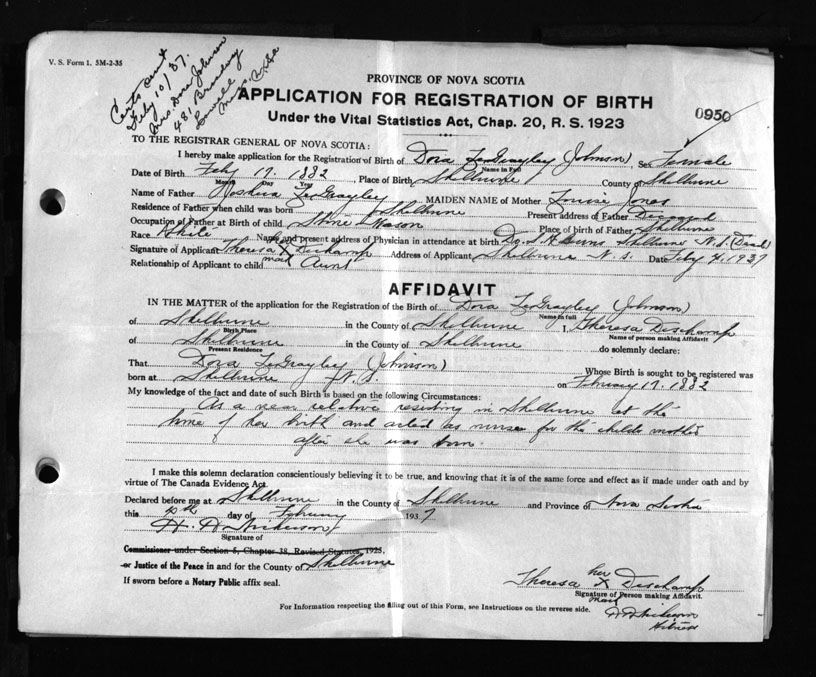 V. S. Form 1. 5M-2-35
Certs sent
Feby 10/37.
Mrs. Dora Johnson
481 Broadway
Lowell
Mass. U.S.A
PROVINCE OF NOVA SCOTIA
APPLICATION FOR REGISTRATION OF BIRTH
Under the Vital Statistics Act, Chap. 20, R. S. 1923
0950
TO THE REGISTRAR GENERAL OF NOVA SCOTIA:
I hereby make application for the Registration of Birth of Dora LeGrayley (Johnson), Sex Female
Name in Full
Date of Birth Feby 17. 1882, Place of Birth Shelburne County of Shelburne
Month Day Year
Name of Father Joshua LeGrayley MAIDEN NAME of Mother Louise Jones
Residence of Father when child was born Shelburne Present address of Father Deceased
Occupation of Father at Birth of child Stone Mason Place of birth of Father Shelburne
Race White Name and present address of Physician in attendance at birth Dr. Shelburne N. S. (Dead)
Signature of Applicant Theresa X Deschamp Address of Applicant Shelburne N. S. Date Feby 4. 1937
mark
Relationship of Applicant to child Aunt
AFFIDAVIT
IN THE MATTER of the application for the Registration of the Birth of Dora LeGrayley (Johnson)
Name in full
of Shelburne in the County of Shelburne I, Theresa Deschamp
Birth Place Name of person making Affidavit
of Shelburne in the County of Shelburne do solemnly declare:
Present Residence
That Dora LeGrayley (Johnson) Whose Birth is sought to be registered was
born at Shelburne N. S. on February 17. 1882
My knowledge of the fact and date of such Birth is based on the following Circumstances:
As a near relative residing in Shelburne at the
time of her birth and acted as nurse for the childs mother
after she was born.
I make this solemn declaration conscientiously believing it to be true, and knowing that it is of the same force and effect as if made under oath and by
virtue of The Canada Evidence Act.
Declared before me at Shelburne in the County of Shelburne and Province of Nova Scotia
this day of February 1937
Signature of
Commissioner under Section 5, Chapter 38, Revised Statutes, 1923,
or Justice of the Peace in and for the County of Shelburne
If sworn before a Notary Public affix seal.
her
Theresa X Deschamp
Signature of Person making Affidavit.
mark
Witness
For Information respecting the filling out of this Form, see Instructions on the reverse side.